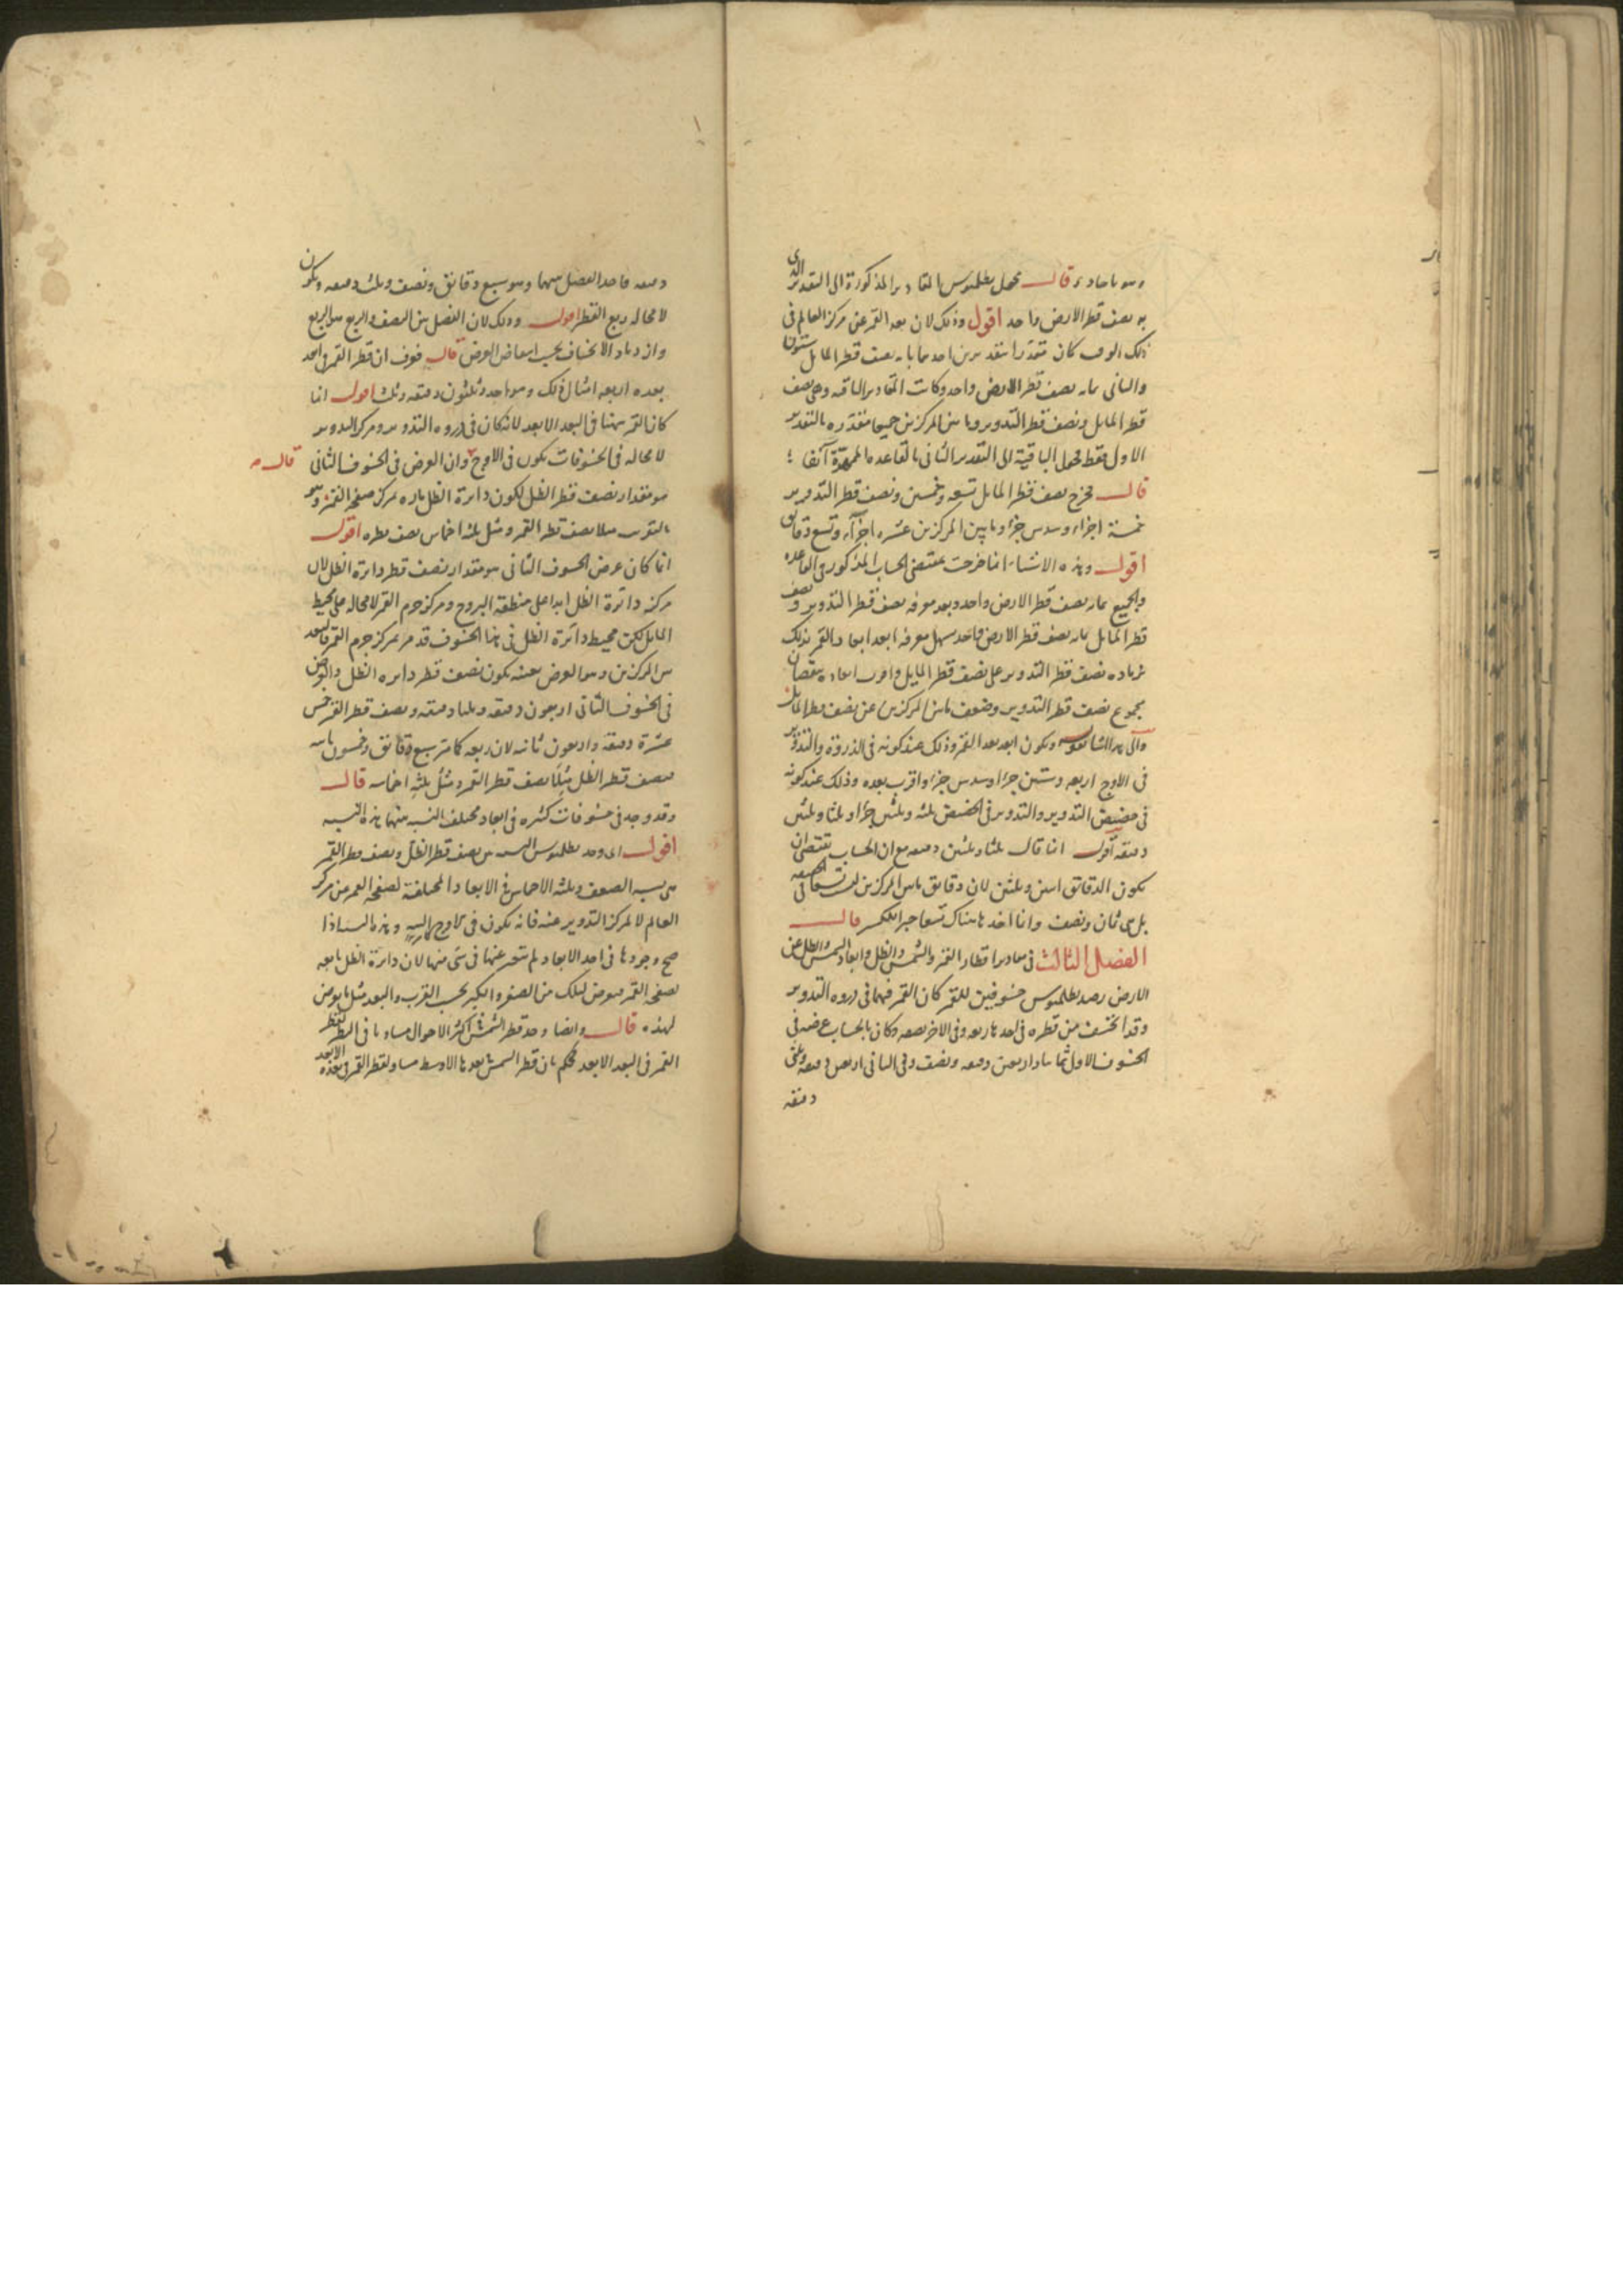 قال فحول بطلميوس المقادير المذكورة الى التقدير الذى
به نصف قطر الارض واحد اقول وذلك لان بعد القمر عن مركز العالم فى
ذلك الوقت كان متقدرا بتقديرين احدهما بما به نصف قطر المايل ستون
والثانى بما به نصف قطر الارض واحد وكانت المقادير الباقيه وهى نصف
قطر المايل ونصف قطر التدوير وما بين المركزين جميعا متقدره بالتقدير
الاول فقط فحول الباقية الى التقدير الثانى بالقاعده الممهدة آنفا
قال فخرج نصف قطر المايل تسعه وخمسين ونصف قطر التدوير
خمسة اجزاء وسدس جزء وما بين المركزين عشره اجزآء وتسع دقايق
اقول وهذه الاشياء انما خرجت بمقتضى الحساب المذكور فى القاعده
والجميع بما به نصف قطر الارض واحد وبعد معرفه نصف قطر التدوير ونصف
قطر المايل بما به نصف قطر الارض واحد سهل معرفه ابعد ابعاد القمر وذلك
بزياده نصف قطر التدوير على نصف قطر المايل واقرب ابعاده بنقصان
مجموع نصف قطر التدوير وضعف ما بين المركزين عن نصف قطر المايل
والى هذا اشار بقوله ويكون ابعد بعد القمر وذلك عند كونه فى الذروة والتدوير
فى الاوج اربعه وستين جزءا وسدس جزء واقرب بعده وذلك عند كونه
فى حضيض التدوير والتدوير فى الحضيض ثلثه وثلثين جزءا وثلثا وثلثين
دقيقه اقول انما قال ثلثا وثلثين دقيقه مع ان الحساب يقتضى ان
يكون الدقائق اثنين وثلثين لان دقايق ما بين المركزين ليست تسعا فى الحقيقه
بل هى ثمان ونصف وانما اخذها هناك تسعا جبرا للكسر قال
الفصل الثالث فى مقادير اقطار القمر والشمس والظل وابعاد الشمس والظل عن
الارض رصد بطلميوس خسوفين للقمر كان القمر فيهما فى ذروه التدوير
وقد انخسف من قطره فى احدهما ربعه وفى الاخر نصفه وكان بالحساب عرضه فى
الخسوف الاول ثمانيا واربعين دقيقه ونصف وفى الثانى اربعين دقيقه وثلثى
دقيقه
دقيقه فاخذ الفضل بينهما وهو سبع دقائق ونصف وثلث دقيقه ويكون
لا محاله ربع القطر اقول وذلك لان الفضل بين النصف والربع هو الربع
وازدياد الانخساف بحسب انتقاص العرض قال فعرف ان قطر القمر فى ابعد
بعده اربعه امثال ذلك وهو احد وثلثون دقيقه وثلث اقول انما
كان القمر ههنا فى البعد الابعد لانه كان فى ذروه التدوير ومركز التدوير
لا محاله فى الخسوفات يكون فى الاوج قال وان العرض فى الخسوف الثانى
هو مقدار نصف قطر الظل لكون دايرة الظل ماره بمركز صفحه القمر وهو
بالتقريب مثلا نصف قطر القمر ومثل ثلثه اخماس نصف قطره اقول
انما كان عرض الخسوف الثانى هو مقدار نصف قطر دايرة الظل لان
مركز دائرة الظل ابدا على منطقه البروج ومركز جرم القمر لا محاله على محيط
المايل لكن محيط دائرة الظل فى هذا الخسوف قد مر بمركز جرم القمر فالبعد
بين المركزين وهو العرض بعينه يكون نصف قطر دايره الظل والعرض
فى الخسوف الثانى اربعون دقيقه وثلثا دقيقه ونصف قطر القمر خمس
عشرة دقيقه واربعون ثانيه لان ربعه كما مر سبع دقائق وخمسون ثانيه
فنصف قطر الظل مثلا نصف قطر القمر ومثل ثلثه اخماسه قال
وقد وجد فى خسوفات كثيره فى ابعاد مختلفه النسبه بينهما هذه النسبه
اقول اى وجد بطلميوس النسبه بين نصف قطر الظل ونصف قطر القمر
هى نسبه الضعف وثلثه الاخماس فى الابعاد المختلفة لصفحه القمر من مركز
العالم لا لمركز التدوير عنه فانه يكون فى الاوج وهذه النسبه اذا
صح وجودها فى احد الابعاد لم تتغير عنها فى شى منها لان دائرة الظل تابعه
لصفحه القمر فيعرض لتلك من الصغر والكبر بحسب القرب والبعد مثل ما يعرض
لهذه قال وايضا وجد قطر الشمس فى اكثر الاحوال مساويا فى النظر لقطر
القمر فى البعد الابعد فحكم بان قطر الشمس فى بعدها الاوسط مساو لقطر القمر فى بعده الابعد